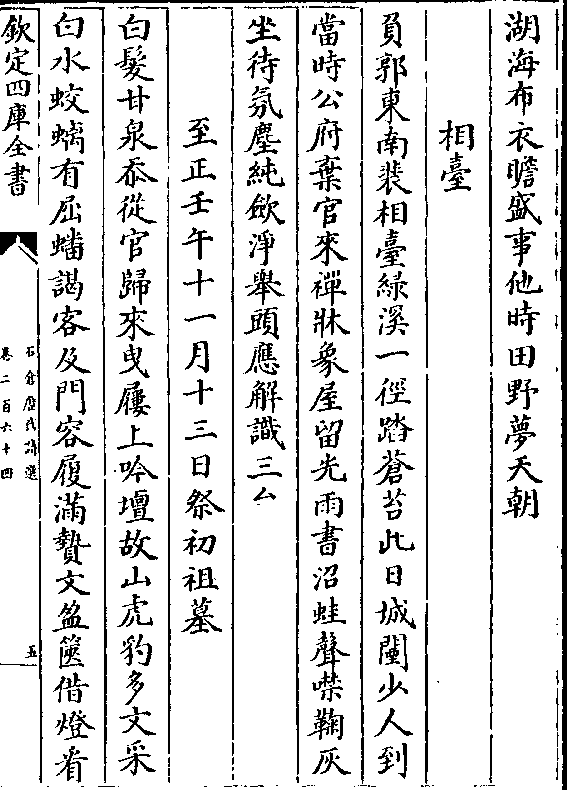 湖海布衣瞻盛事他時田野夢天朝
相臺
負郭東南裴相臺緑溪一徑踏蒼苔此日城闉少人到
當時公府棄官來禪牀象屋留光雨書沼蛙聲噤鞠灰
坐待氛塵純斂淨舉頭應解識三厶
至正壬午十一月十三日祭初祖墓
白髮甘泉忝從官歸來曳屨上吟壇故山虎豹多文采
白水蛟螭有屈蟠謁客及門容履滿贄文盈篋借燈看
欽定四庫全書
石倉歴代詩選
卷二百六十四
五